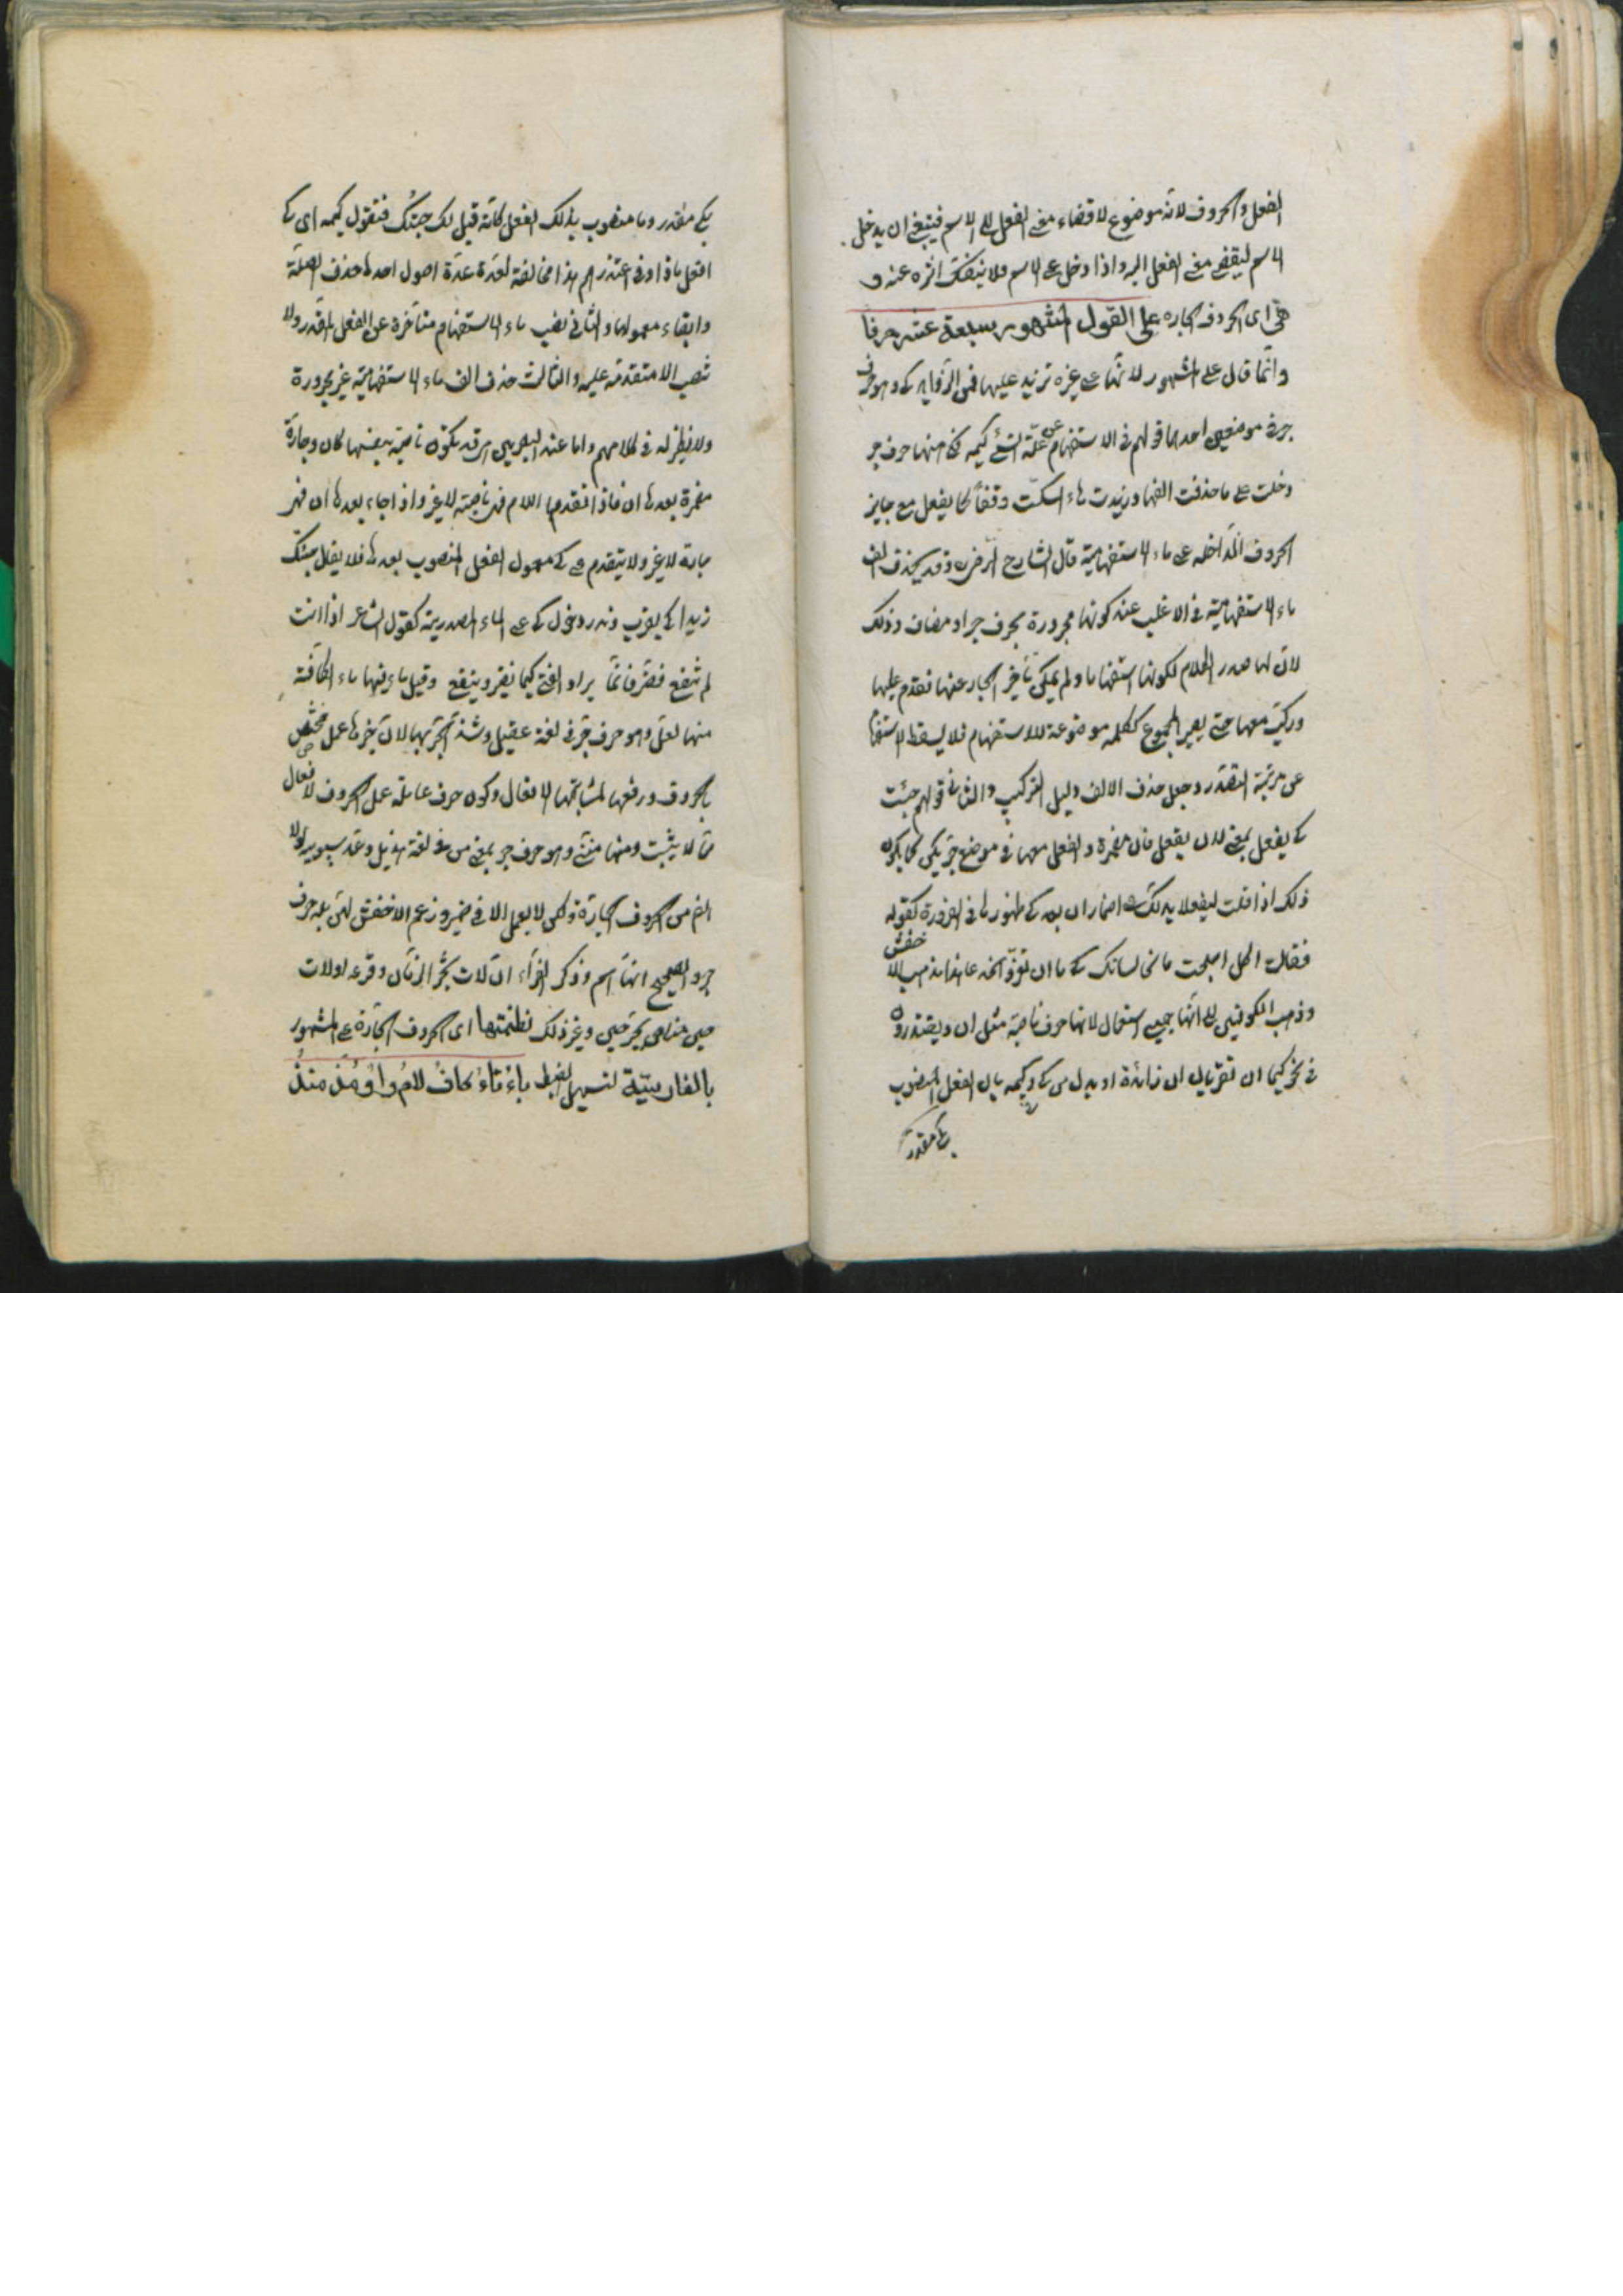 الفعل والحروف لانه موضوع لاقضاء معنى الفعل الى الاسم فينبغى ان يدخل
الاسم ليقضى معنى الفعل اليه واذا دخل على الاسم ولا ينفك اثره عنه و
هى اى الحروف الجاره على القول المشهور سبعة عشر حرفا
وانما قال على المشهور لانها على غيره تزيد عليها فمن الزوايد كى وهو حرف
جر فى موضعين احدهما قولهم فى الاستفهام عن علة الشئ كيمه فكى منها حرف جر
دخلت على ما حذفت الفها وزيدت هاء السكت وقفا كما يفعل مع ساير
الحروف الداخله على ماء الاستفهامية قال الشارح الرضى وقد يحذف الف
ماء الاستفهامية فى الاغلب عند كونها مجرورة بحرف جر او مضاف وذلك
لان لها صدر الكلام لكونها استفهاما ولم يمكن تأخير الجار عنها فقدم عليها
وركب معها حتى يصير المجموع ككلمه موضوعة للاستفهام فلا يسقط الاستفهام
عن مرتبة التصدر وجعل حذف الالف دليل التركيب والثانى قولهم جئت
كى يفعل بمعنى لان يفعل فان مضمرة والفعل معها فى موضع جر بكى كما يكون
ذلك اذا قلت ليفعل يدلك اضمار ان بعد كى ظهورها فى الضرورة كقوله
فقالت اكل اصبحت مانحا لسانك كى ما ان تغر وتخدعا هذا مذهب الاخفش
وذهب الكوفيين الى انها جميع استعمالاتها حرف ناصبة مثل ان ويعتذرون
فى نحو كيما ان تغر بان ان زائدة او بدل من كى وكيمه بان الفعل المنصوب
بكى مقدر
بكى مقدر وما منصوب بذلك الفعل كانه قيل لك جئتك فتقول كيمه اى كى
افعل ماذا وفى اعتذارهم هذا مخالفة لعدة عدة اصول احدها حذف الصلة
وابقاء معمولها والثانى نصب ماء الاستفهام متأخرة عن الفعل المقدر ولا
تنصب الا متقدمة عليه والثالث حذف الف ماء الاستفهامية غير مجرورة
ولا نظير له فى كلامهم واما عند البصريين قد تكون ناصبة بنفسها كان وجارة
مضمرة بعدها ان فاذا تقدمها اللام فهى ناصبة لا غير واذا جاء بعدها ان فهى
جارة لا غير ولا يتقدم على كى معمول الفعل المنصوب بعدها فلا يقال جئتك
زيدا كى يضرب وندر دخول كى على الماء المصدرية كقول الشاعر اذا انت
لم تنفع فضر فانما يراد الفتى كيما يضر وينفع وقيل ما فيها ماء الكافة
منها لعل وهو حرف جر فى لغة عقيل وشذ الجر بها لان جرها عمل مختص
بالحروف ورفعها لمشابهتها الافعال وكون حرف عاملة عمل الحروف الافعال
مما لا يثبت ومنها متى وهو حرف جر بمعنى من فى لغة هذيل وعد سيبويه لولا
التى من الحروف الجارة ولكن لا يعمل الا فى ضمير وزعم الاخفش بله حرف
جر والصحيح انها اسم وذكر الفراء ان لات يجر الزمان وقرء ولات
حين مناص بجر حين وغير ذلك نظمتها اى الحروف الجارة على المشهور
بالفارسيّة لتسهيل الضبط باءُ تاءُ كافُ لامُ واوُ مُذْ منذُ